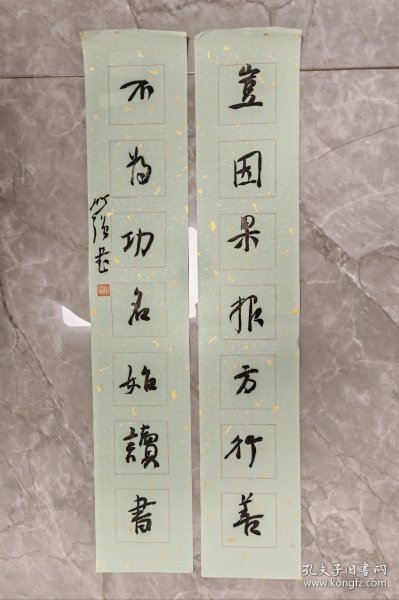 豈因果报方行善
不为功名始讀書
孔夫子旧书网
www.kongfz.com